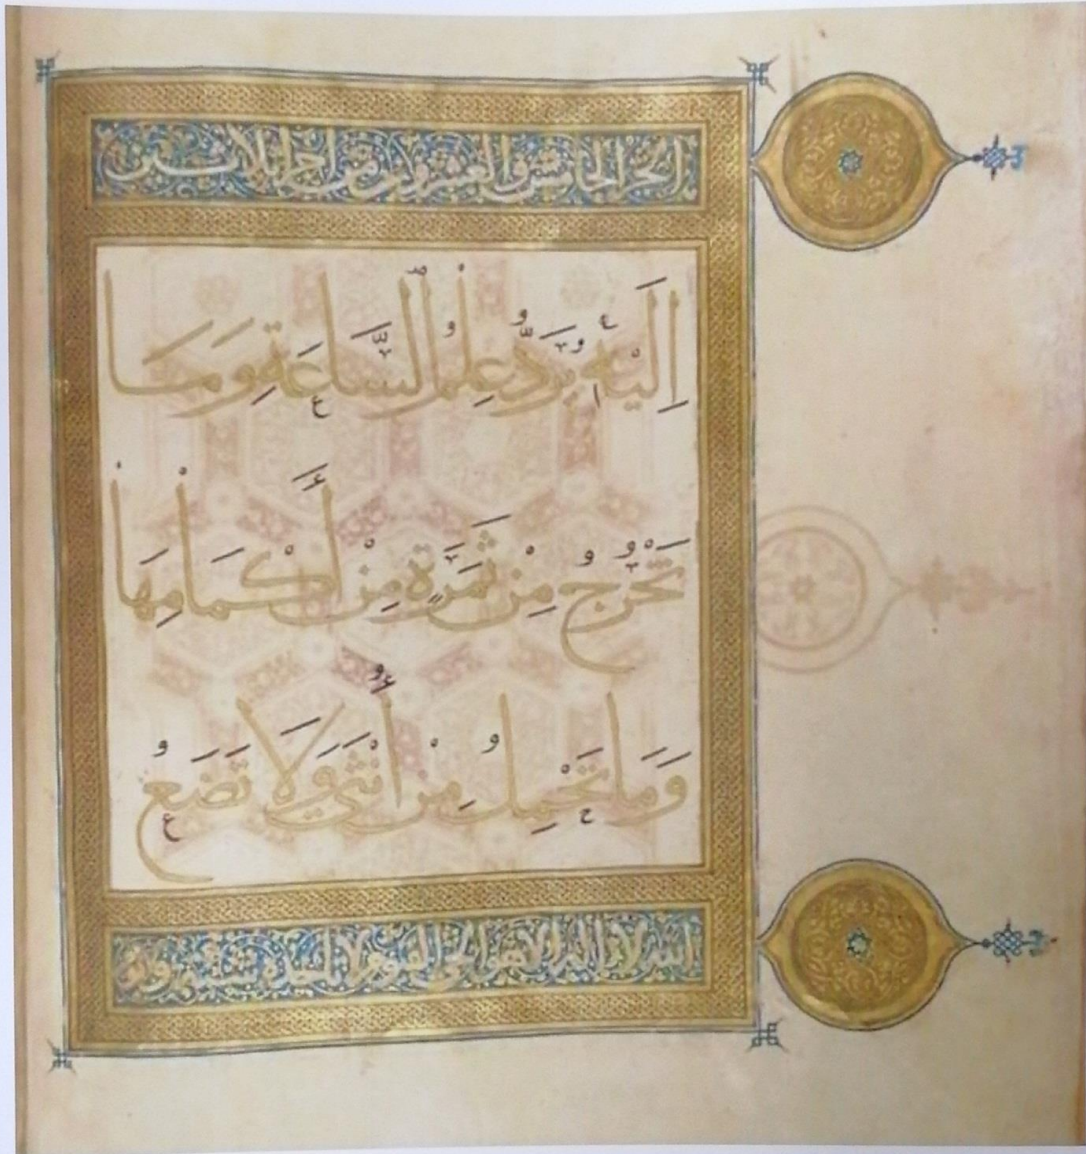 الجزء الخامس والعشرون من اجزاء ثلاثين
إِلَيْهِ يُرَدُّ عِلْمُ ٱلسَّاعَةِ وَمَا
تَخْرُجُ مِنْ ثَمَرَةٍ مِنْ أَكْمَامِهَا
وَمَا تَحْمِلُ مِنْ أُنْثَى وَلَا تَضَعُ
الله لا اله الا هو الحي القيوم لا تاخذه سنة ولا نوم